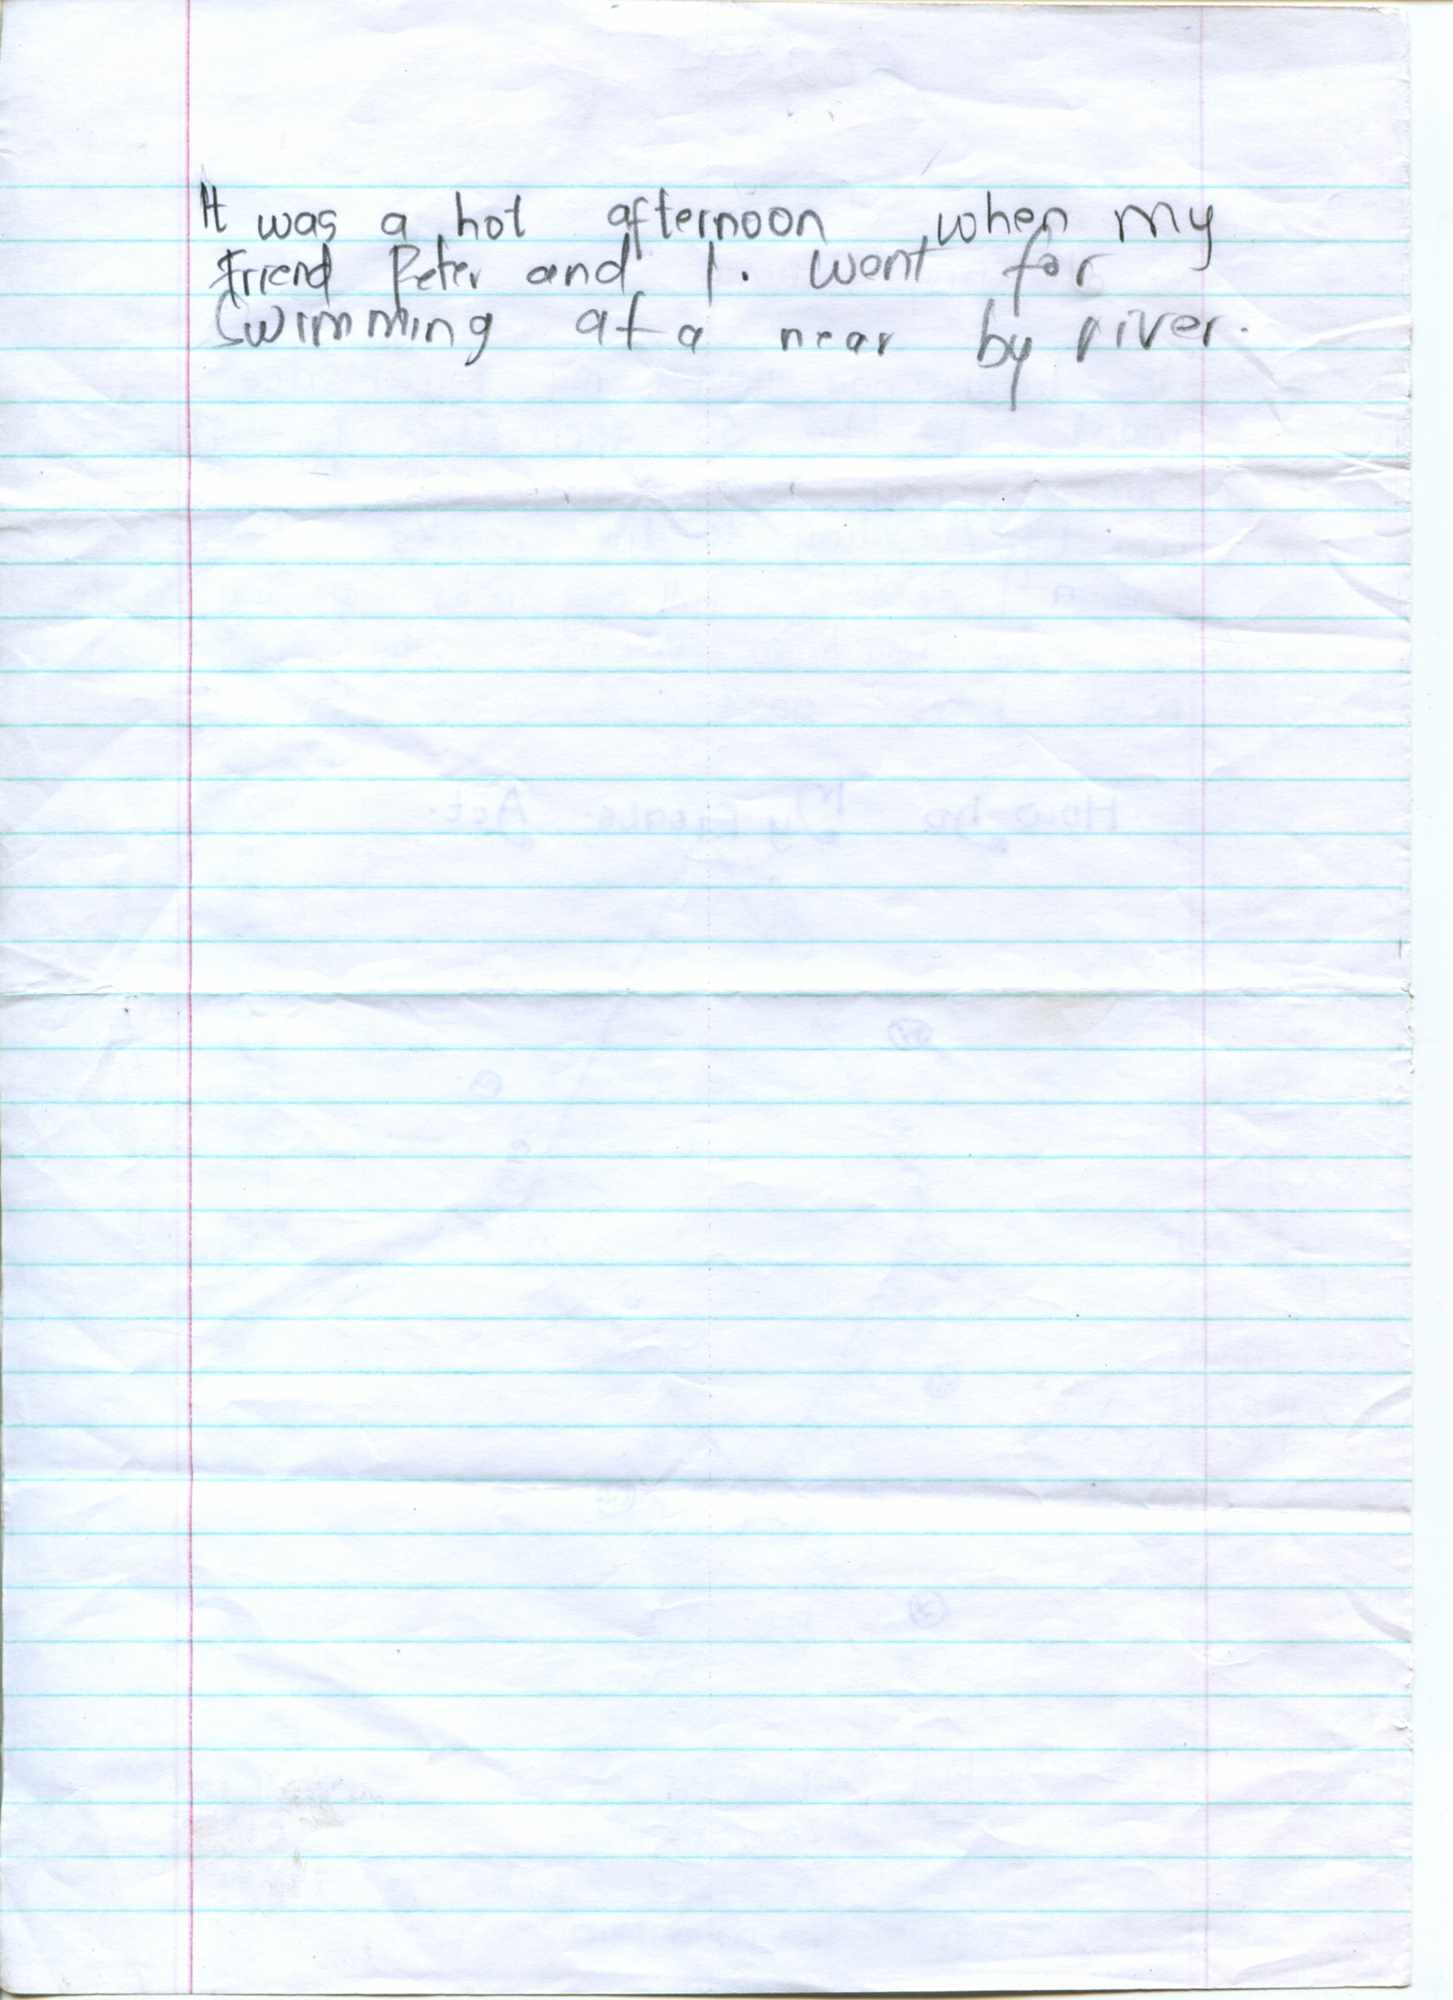 It was a hot afternoon when my
friend Peter and I. went for
swimming at a near by river.